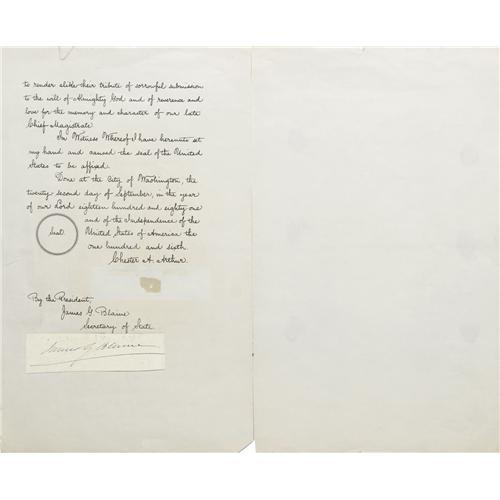 to render alike their tribute of sorrowful submission
to the will of Almighty God and of reverence and
love for the memory and character of our late
Chief Magistrate.
In Witness Whereof I have hereunto set
my hand and caused the seal of the United
States to be affixed.
Done at the City of Washington, the
twenty second day of September, in the year
of our Lord eighteen hundred and eighty one
and of the Independence of the
Seal.
United States of America the
one hundred and sixth.
Chester A. Arthur.
By the President,
James G. Blaine
Secretary of State
James G Blaine